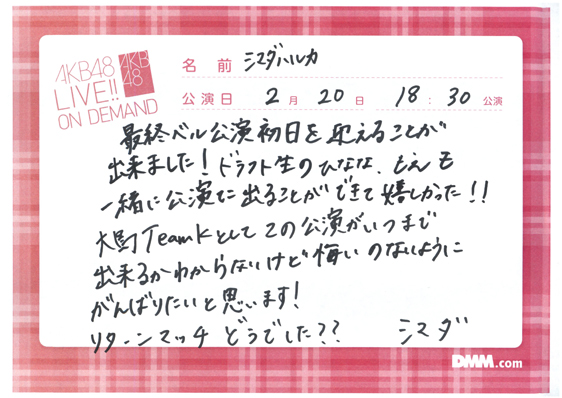 AKB48
LIVE!!
ON DEMAND
AKB
48
名前 シマダハルカ
公演日 2月20日 18:30公演
最終ベル公演初日を迎えることが
出来ました！ドラフト生のひなな、もえも
一緒に公演に出ることができて嬉しかった！！
大島TeamKとしてこの公演がいつまで
出来るかわからないけど悔いのないように
がんばりたいと思います！
リターンマッチ どうでした？？ シマダ
DMM.com